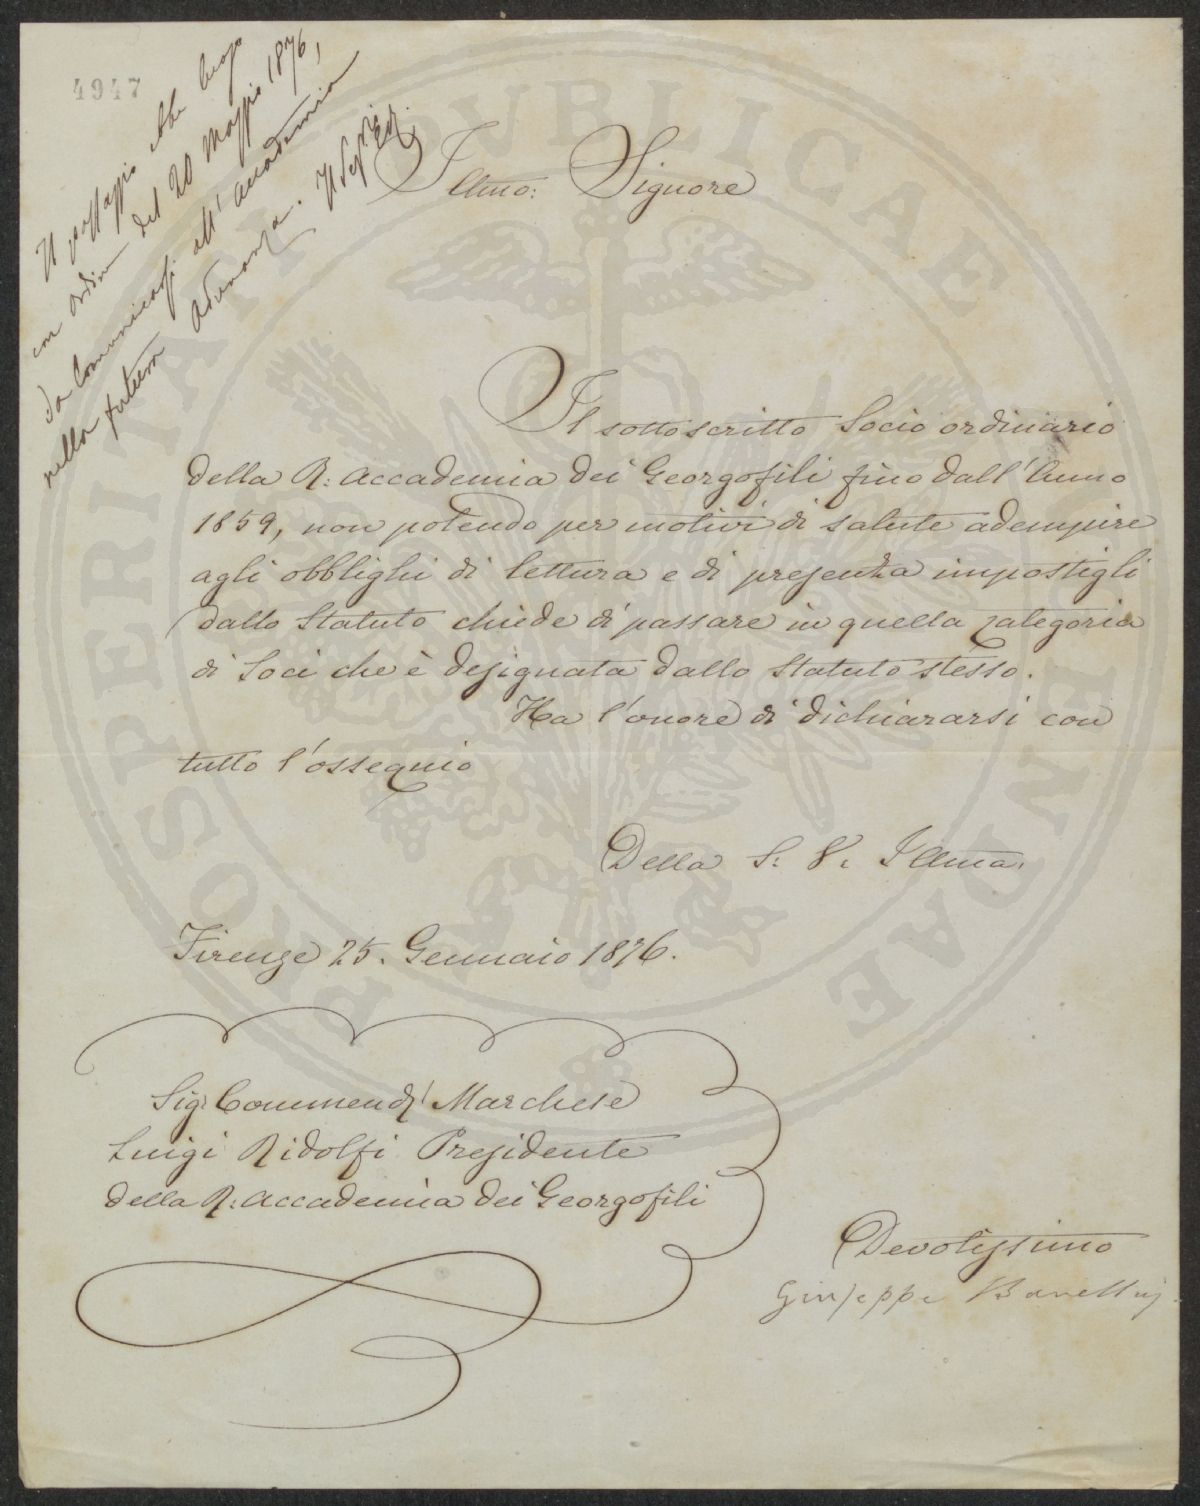 4947
Il passaggio ebbe luogo
con ordin del 20 Maggio 1876,
da Comunicarsi all'Accademia
nella futura adunanza. Il Seg
Illmo: Signore
Il sottoscritto Socio ordinario
della R: Accademia dei Georgofili fino dall'Anno
1859, non potendo per motivi di salute adempire
agli obblighi di lettura e di presenza impostigli
dallo Statuto chiede di passare in quella categoria
di Soci che è designata dallo Statuto stesso.
Ha l'onore di dichiararsi con
tutto l'ossequio
Della S: V: Illma:
Firenze 25. Gennaio 1876.
Sig: Commend: Marchese
Luigi Ridolfi Presidente
della R: Accademia dei Georgofili
Devotissimo
Giuseppe
PROSPERITATI PVBLICAE AVGENDAE